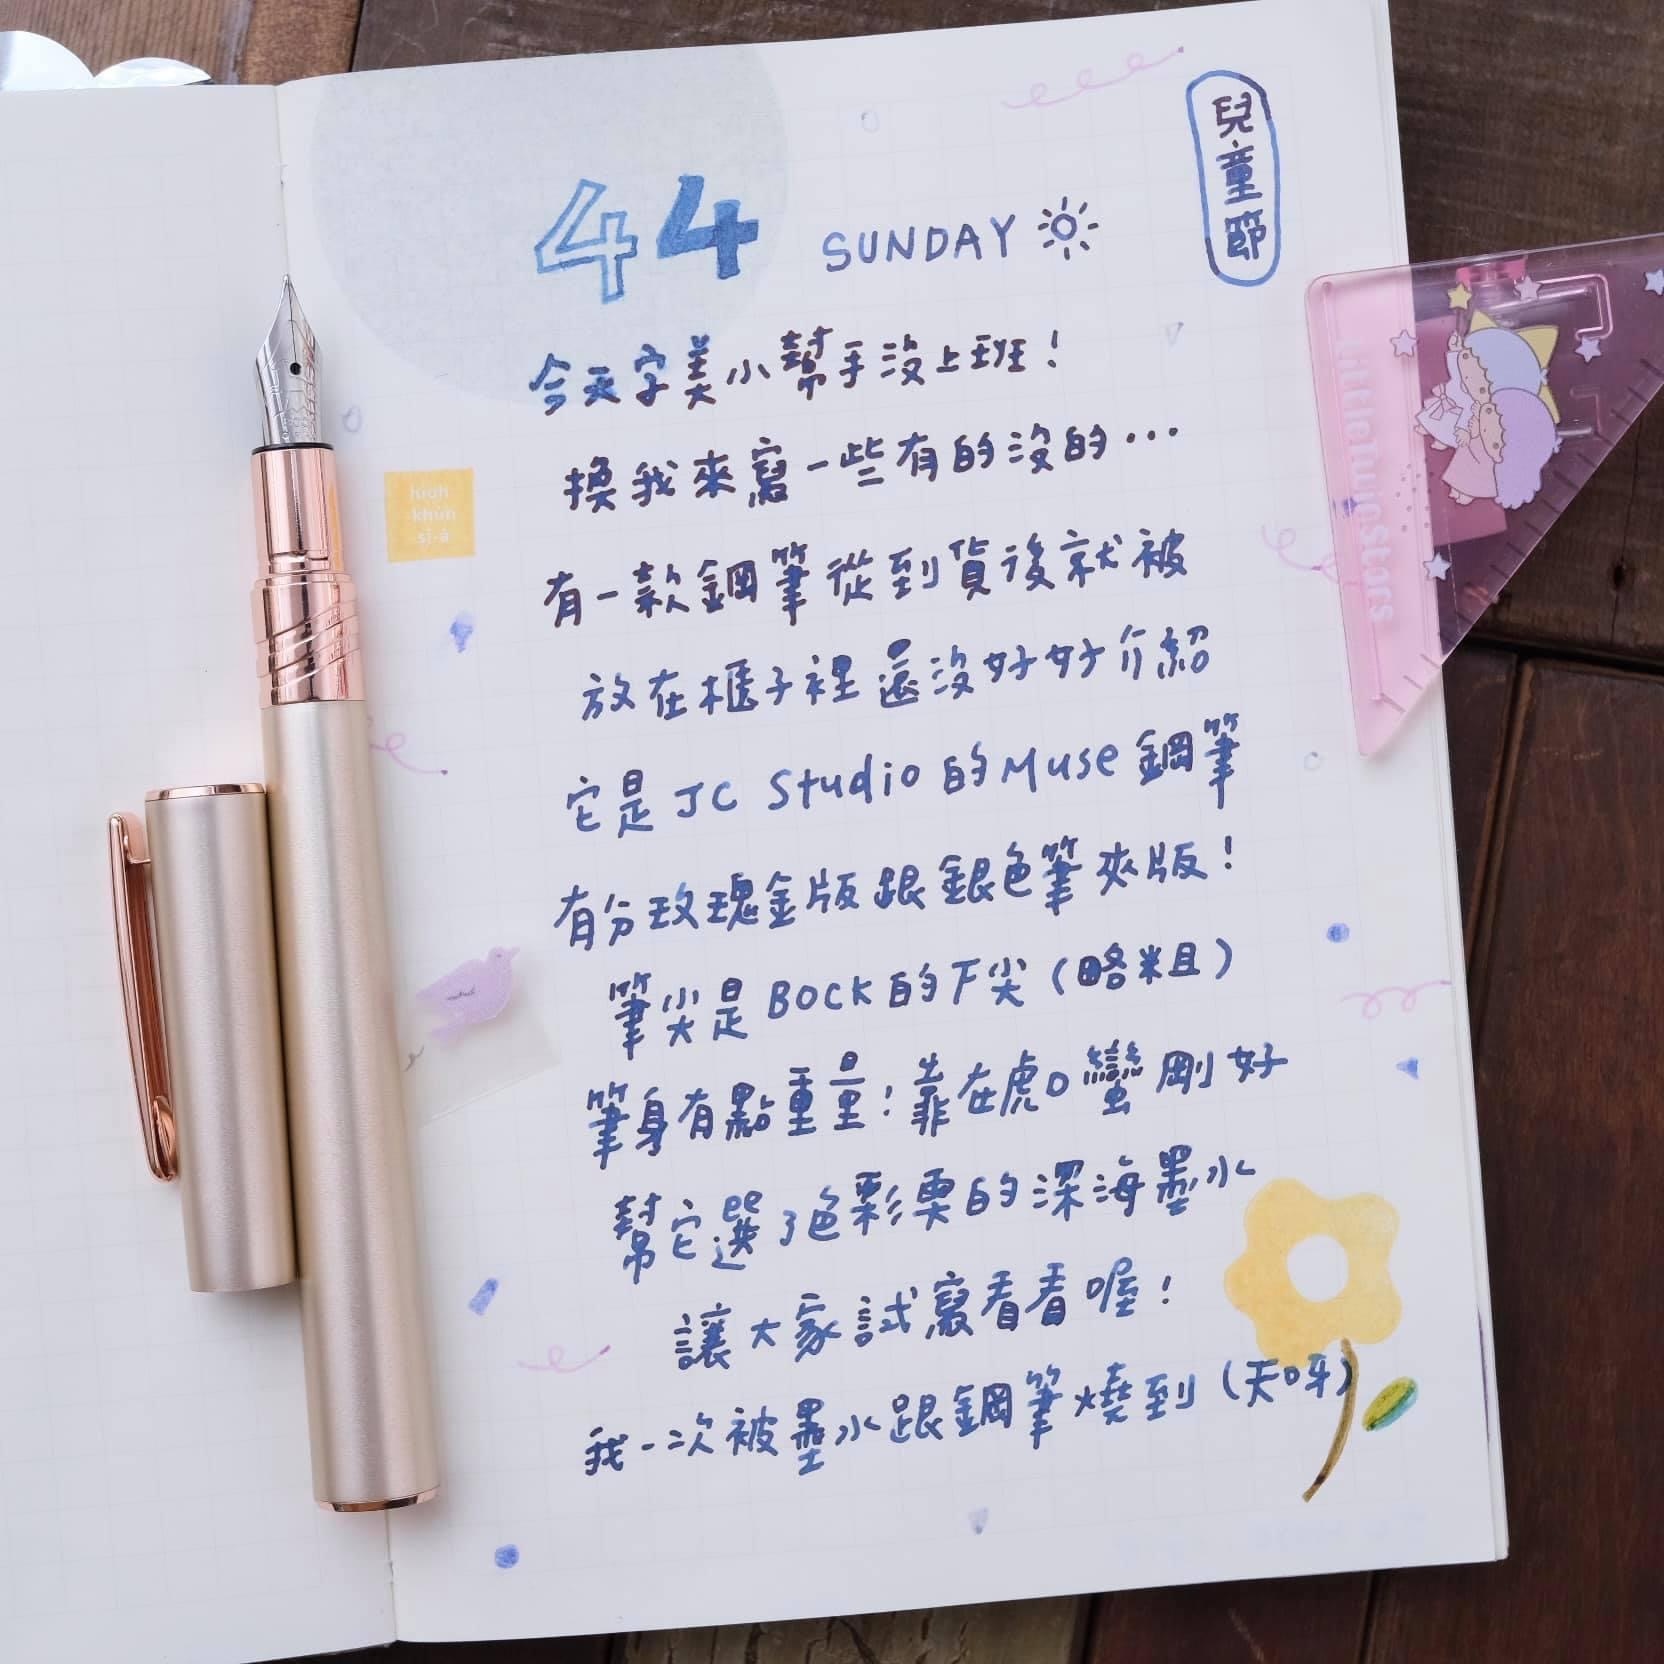 兒童節
44 SUNDAY
今天字美小幫手沒上班！
換我來寫一些有的沒的…
有一款鋼筆從到貨後就被
放在櫃子裡還沒好好介紹
它是JC Studio的Muse鋼筆
有分玫瑰金版跟銀色筆夾版！
筆尖是BOCK的F尖（略粗）
筆身有點重量！靠在虎口蠻剛好
幫它選了色彩栗的深海墨水
讓大家試寫看看喔！
我一次被墨水跟鋼筆燒到（天呀）
hioh
-khùn
-sì-á
LittleTwinStars